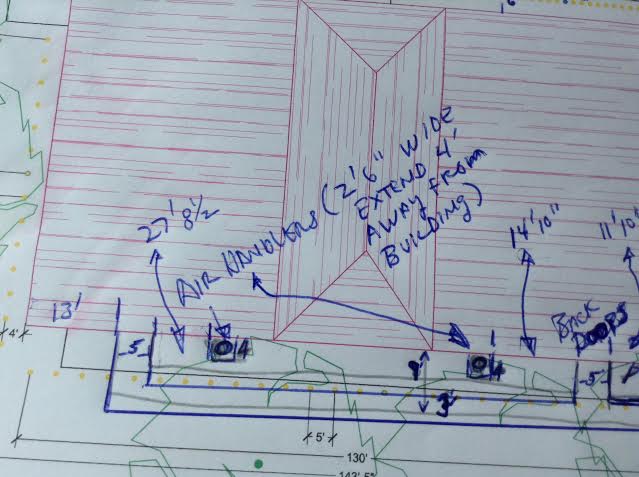 27' 8½
AIR HANDLERS (2' 6" WIDE
EXTEND 4'
AWAY FROM
BUILDING)
14' 10"
11' 10"
13'
4'
5
4
4
Brick
DOORS
5
9'
3'
5'
130'
143' 5"